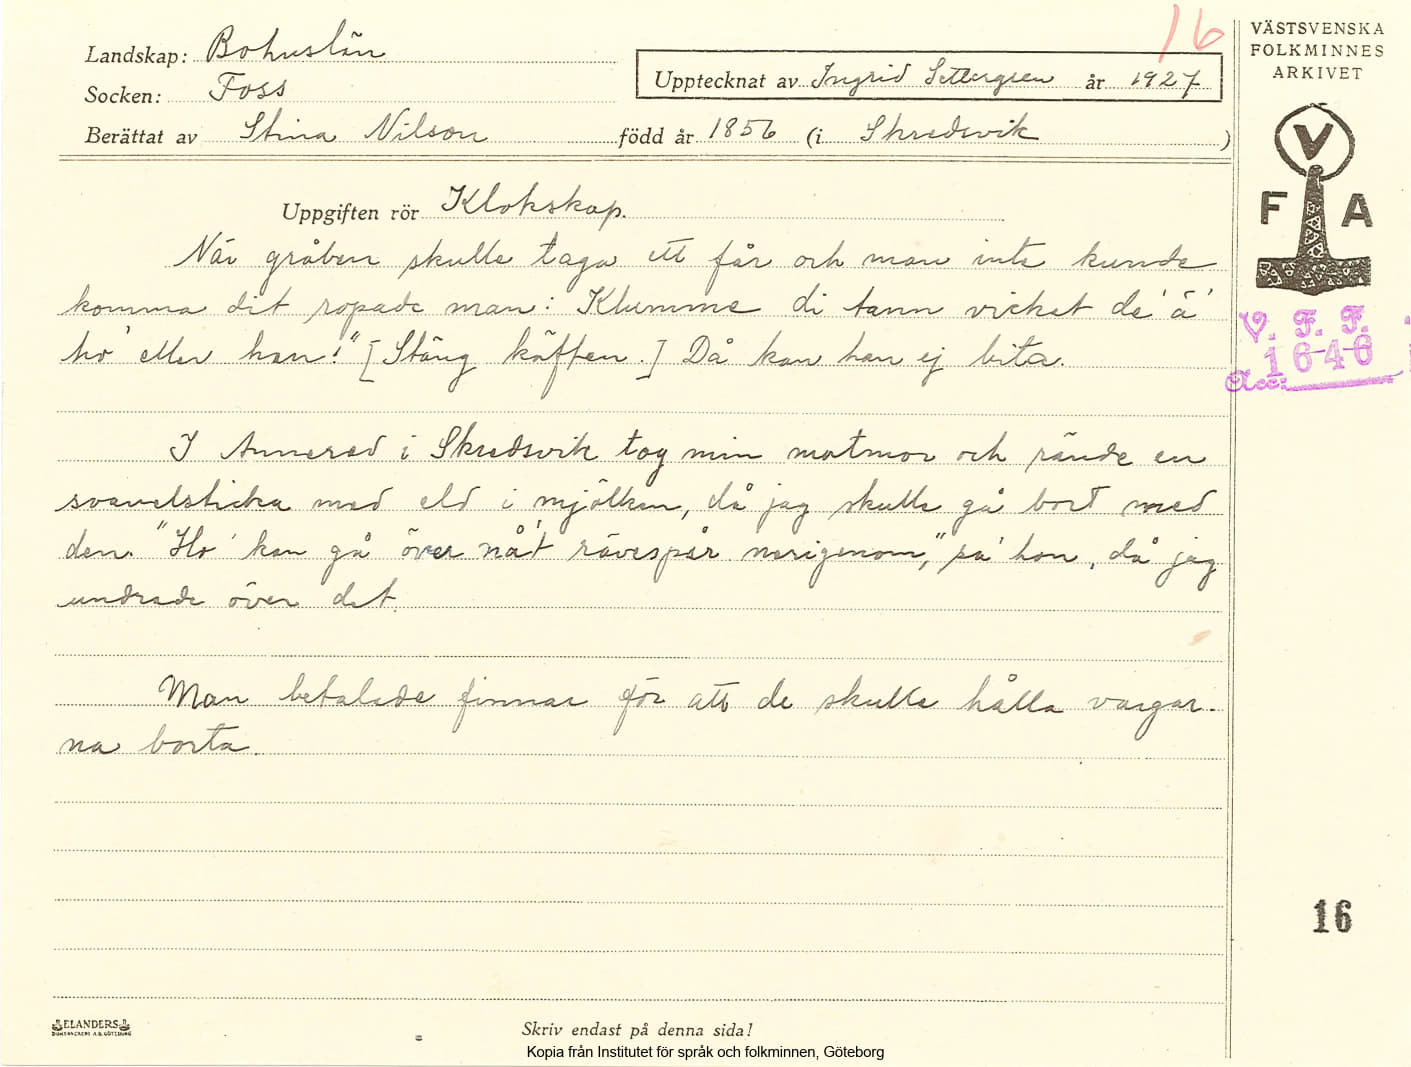 16
Landskap: Bohuslän
Socken: Foss
Upptecknat av Ingrid Settergren år 1927
Berättat av Stina Nilson född år 1856 (i Skredsvik )
VÄSTSVENSKA
FOLKMINNES
ARKIVET
V
F A
V. F. F.
Acc: 1646
Uppgiften rör Klokskap.
När gråben skulle taga ett får och man inte kunde
komma dit ropade man: Klumme di tann vicket de' ä'
ho' eller han!" [Stäng käften.] Då kan han ej bita.
I Annerød i Skredsvik tog min matmor och rände en
svavelsticka med eld i mjölken, då jag skulle gå bort med
den. "Ho' kan gå över nå't rävespår nerigenom," sa' hon, då jag
undrade över det.
Man betalade finnar för att de skulle hålla vargar-
na borta.
16
ELANDERS
Skriv endast på denna sida!
Kopia från Institutet för språk och folkminnen, Göteborg